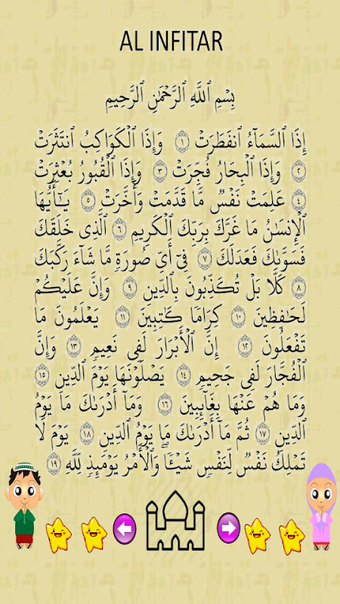 AL INFITAR
بِسْمِ ٱللَّهِ ٱلرَّحْمَٰنِ ٱلرَّحِيمِ
إِذَا ٱلسَّمَآءُ ٱنفَطَرَتْ ١ وَإِذَا ٱلْكَوَاكِبُ ٱنتَثَرَتْ
٢ وَإِذَا ٱلْبِحَارُ فُجِّرَتْ ٣ وَإِذَا ٱلْقُبُورُ بُعْثِرَتْ
٤ عَلِمَتْ نَفْسٌ مَّا قَدَّمَتْ وَأَخَّرَتْ ٥ يَٰٓأَيُّهَا
ٱلْإِنسَٰنُ مَا غَرَّكَ بِرَبِّكَ ٱلْكَرِيمِ ٦ ٱلَّذِى خَلَقَكَ
فَسَوَّىٰكَ فَعَدَلَكَ ٧ فِىٓ أَىِّ صُورَةٍ مَّا شَآءَ رَكَّبَكَ
٨ كَلَّا بَلْ تُكَذِّبُونَ بِٱلدِّينِ ٩ وَإِنَّ عَلَيْكُمْ
لَحَٰفِظِينَ ١٠ كِرَامًا كَٰتِبِينَ ١١ يَعْلَمُونَ مَا
تَفْعَلُونَ ١٢ إِنَّ ٱلْأَبْرَارَ لَفِى نَعِيمٍ ١٣ وَإِنَّ
ٱلْفُجَّارَ لَفِى جَحِيمٍ ١٤ يَصْلَوْنَهَا يَوْمَ ٱلدِّينِ ١٥
وَمَا هُمْ عَنْهَا بِغَآئِبِينَ ١٦ وَمَآ أَدْرَىٰكَ مَا يَوْمُ
ٱلدِّينِ ١٧ ثُمَّ مَآ أَدْرَىٰكَ مَا يَوْمُ ٱلدِّينِ ١٨ يَوْمَ لَا
تَمْلِكُ نَفْسٌ لِّنَفْسٍ شَيْـًٔا وَٱلْأَمْرُ يَوْمَئِذٍ لِّلَّهِ ١٩